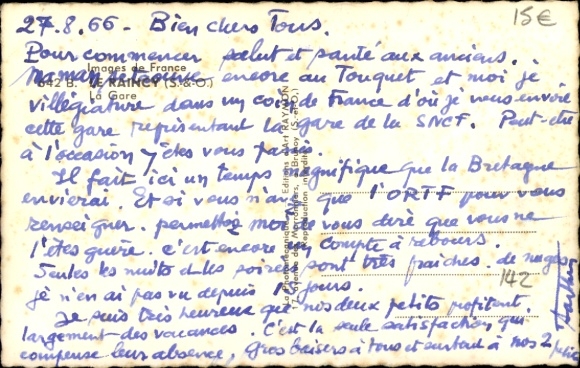 27.8.66 - Bien chers Tous.
15€
Pour commencer salut et santé aux anciens.
Images de France
Maman se trouve encore au Touquet et moi je
642 B. LE RAINCY (S.-&-O.)
La Gare
villégiature dans un coin de France d'où je vous envoie
cette gare représentant la gare de la SNCF. Peut-être
à l'occasion y êtes vous passés
Il fait ici un temps magnifique que la Bretagne
envierai. Et si vous n'avez que l'ORTF pour vous
renseigner. permettez moi de vous dire que vous ne
l'êtes guère. c'est encore un compte à rebours.
Seules les nuits et les soirées sont très fraîches. de nuages
je n'en ai pas vu depuis jours.
142
Je suis très heureux que nos deux petits profitent
largement des vacances. C'est la seule satisfaction qui
compense leur absence. Gros baisers à tous et surtout à nos 2
Editions d'Art RAYMON
Reproduction interdite